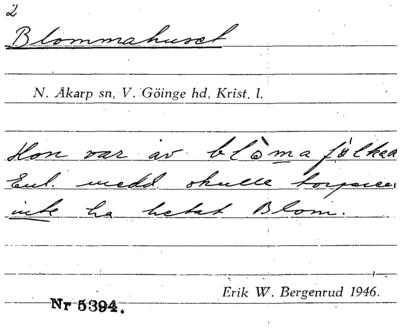 2
Blommahuset
N. Åkarp sn, V. Göinge hd, Krist. l.
Hon var av blòma fòlkaa
Enl. medd skulle torparen
inte ha hetat Blom.
Erik W. Bergenrud 1946.
Nr 5394.